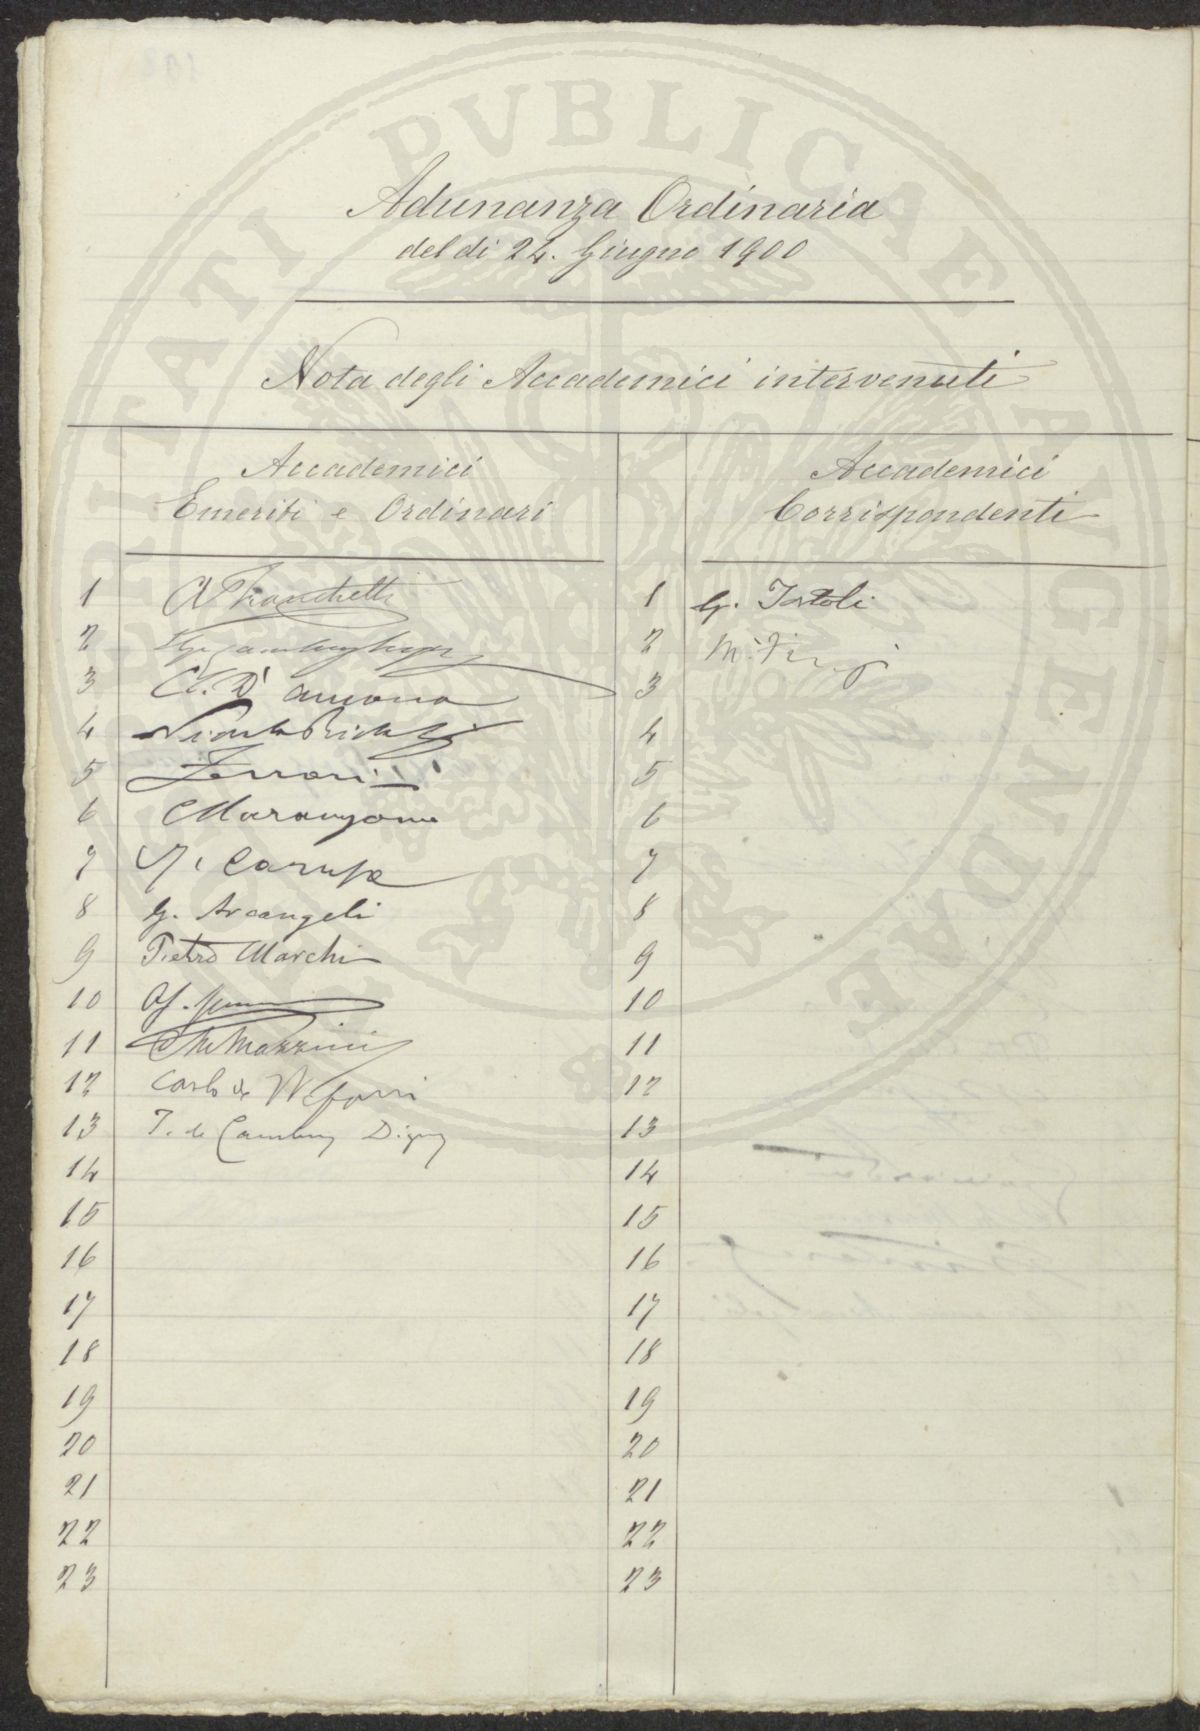 PROSPERITATI PVBLICAE AVGENDAE
Adunanza Ordinaria
del dì 24. Giugno 1900
Nota degli Accademici intervenuti
Accademici
Emeriti e Ordinari
Accademici
Corrispondenti
1 A Franchetti
2
3 C. D'ancona
4
5 Ferrari
6 Marangoni
7
8 G. Arcangeli
9 Pietro Marchi
10
11 Mazzini
12 Carlo de
13 T. de Cambray Digny
14
15
16
17
18
19
20
21
22
23
1
2
3
4
5
6
7
8
9
10
11
12
13
14
15
16
17
18
19
20
21
22
23